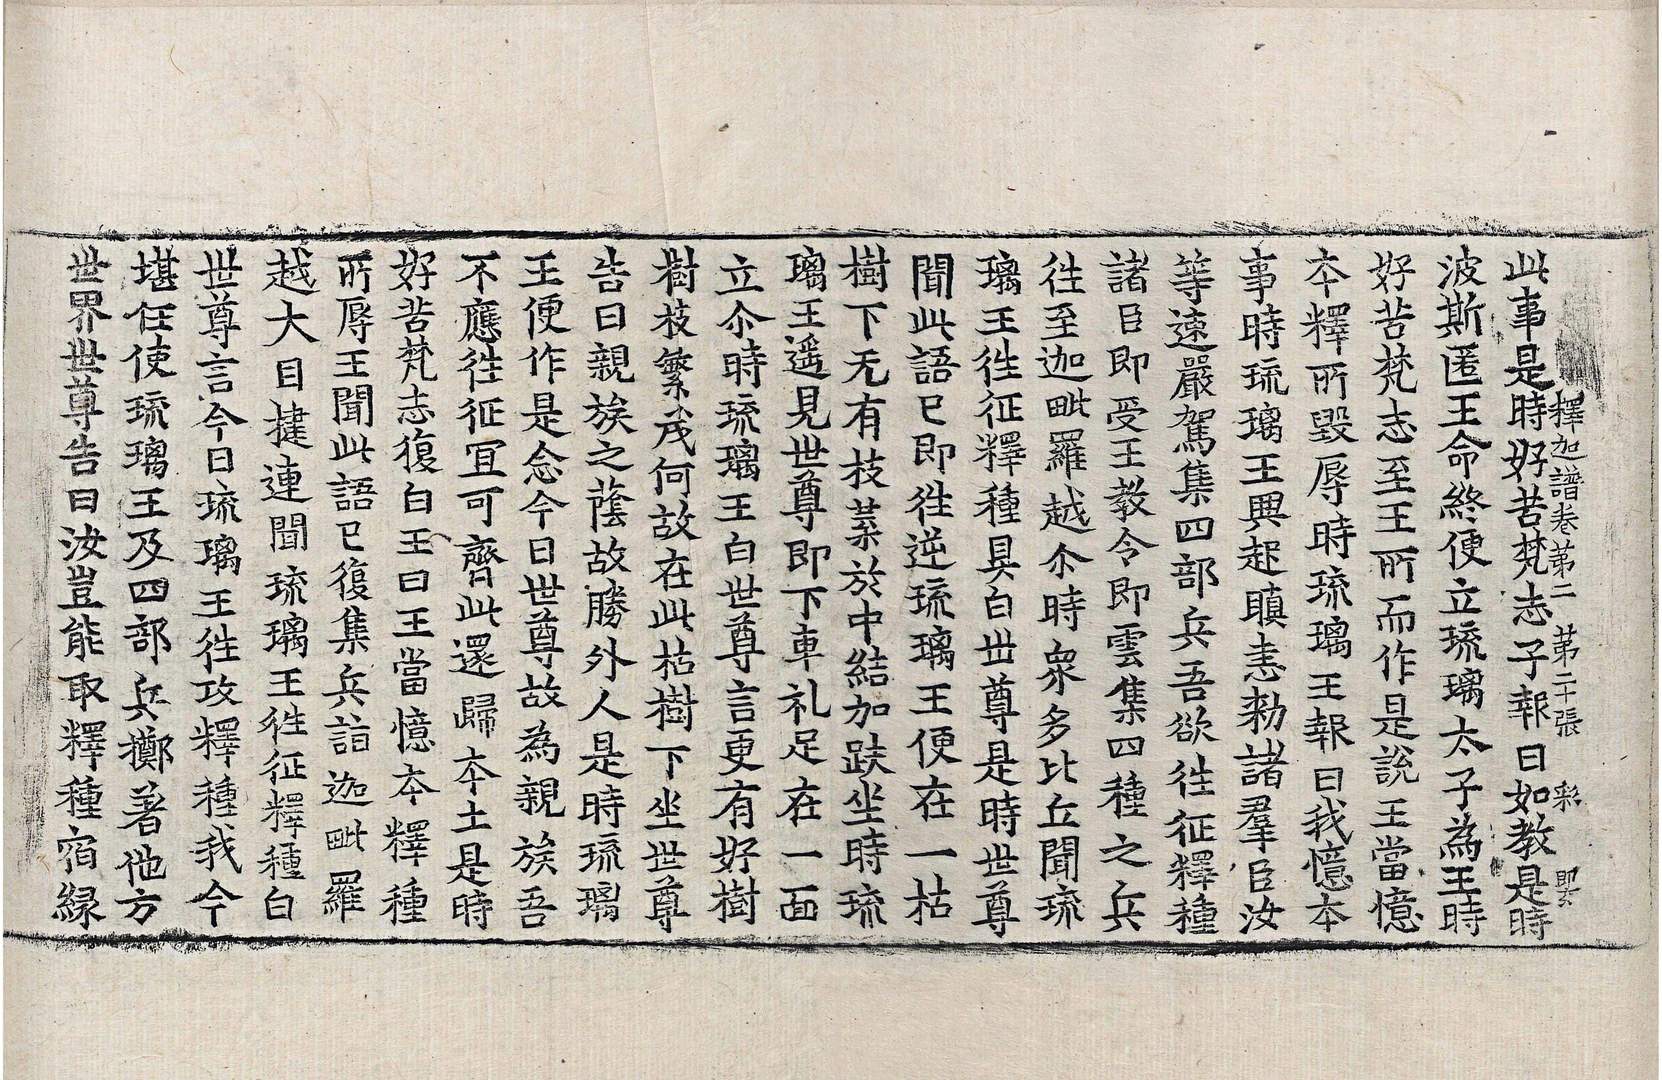 此事是時好苦梵志子報曰如教是時
釋迦譜卷第二　第二十張　彩
波斯匿王命終便立琉璃太子為王時
好苦梵志至王所而作是說王當憶
本釋所毀辱時琉璃王報曰我憶本
事時琉璃王興起瞋恚勑諸羣臣汝
等速嚴駕集四部兵吾欲往征釋種
諸臣即受王教令即雲集四種之兵
往至迦毗羅越尒時衆多比丘聞琉
璃王徃征釋種具白世尊是時世尊
聞此語已即徃逆琉璃王便在一枯
樹下无有枝葉於中結加趺坐時琉
璃王遥見世尊即下車礼足在一面
立尒時琉璃王白世尊言更有好樹
樹枝繁茂何故在此枯樹下坐世尊
告曰親族之蔭故勝外人是時琉璃
王便作是念今日世尊故為親族吾
不應徃征宜可齊此還歸本土是時
好苦梵志復白王曰王當憶本釋種
所辱王聞此語已復集兵詣迦毗羅
越大目揵連聞琉璃王徃征釋種白
世尊言今日琉璃王徃攻釋種我今
堪任使琉璃王及四部兵擲著他方
世界世尊告曰汝豈能取釋種宿緣